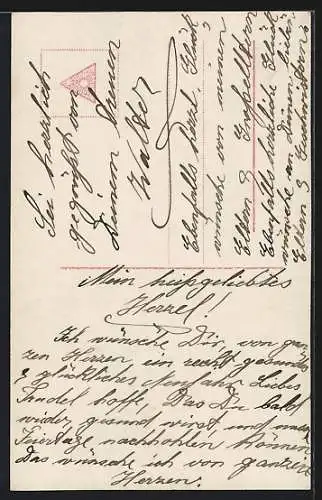 Mein heißgeliebtes
Herzel!
Ich wünsche Dir, von gan-
zen Herzen ein recht gesundes
& glückliches Neujahr. Liebes
hoffe, Das Du bald
wieder gesund wirst und unsere
Feiertage nachhohlen können
Das wünsche ich von ganzen
Herzen.
Sei herzlich
gegrüßt von
Deinem treuen
Walter
Ebenfalls herzl. Glück
wünsche von meinen
Eltern & Großeltern
Ebenfalls herzliche Glück
wünsche an Deinen lieben
Eltern & Geschwistern